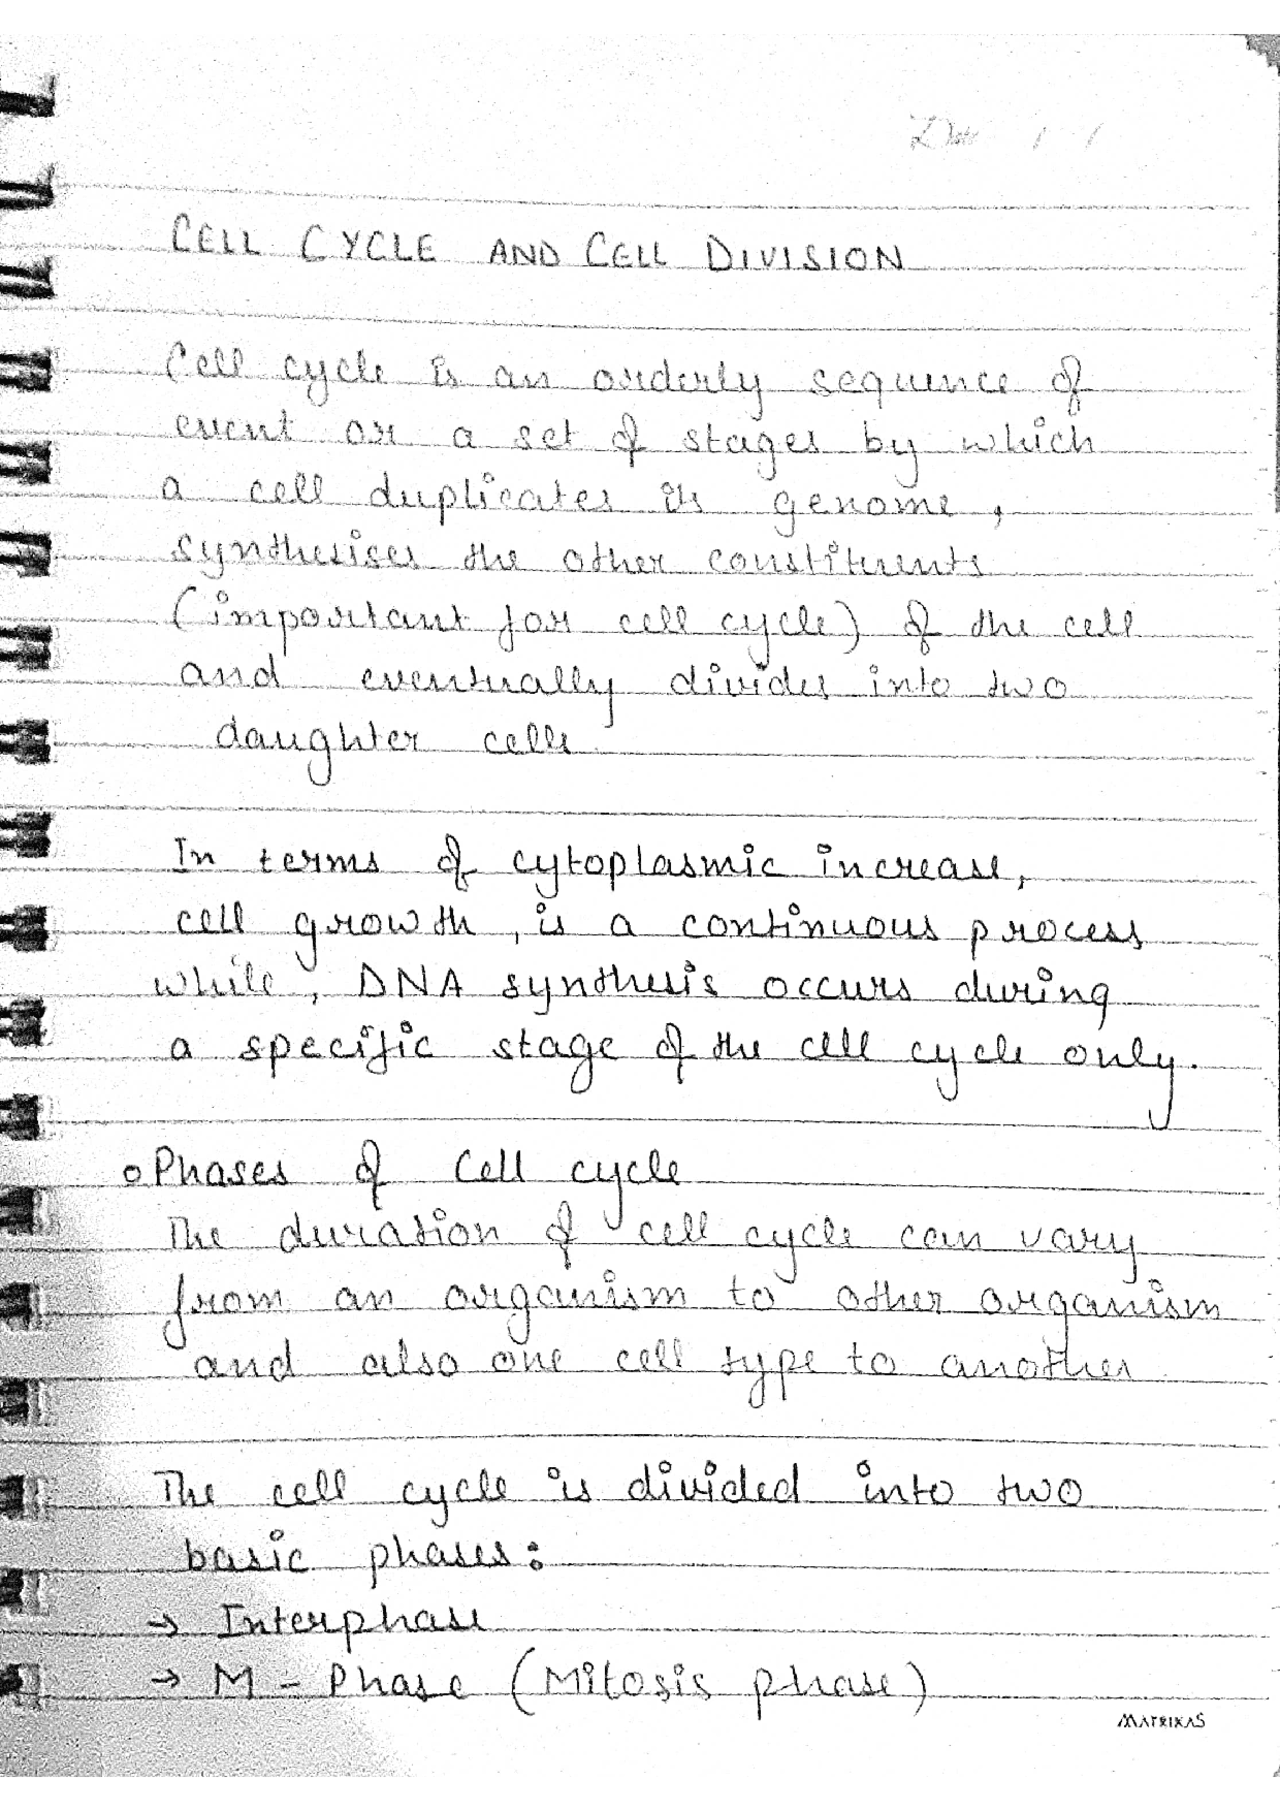 Date / /
CELL CYCLE AND CELL DIVISION
Cell cycle is an orderly sequence of
event or a set of stages by which
a cell duplicates its genome,
synthesises the other constituents
(important for cell cycle) of the cell
and eventually divides into two
daughter cells
In terms of cytoplasmic increase,
cell growth, is a continuous process
while, DNA synthesis occurs during
a specific stage of the cell cycle only.
o Phases of Cell cycle
The duration of cell cycle can vary
from an organism to other organism
and also one cell type to another
The cell cycle is divided into two
basic phases:
→ Interphase
→ M - Phase (Mitosis phase)
MATRIKAS